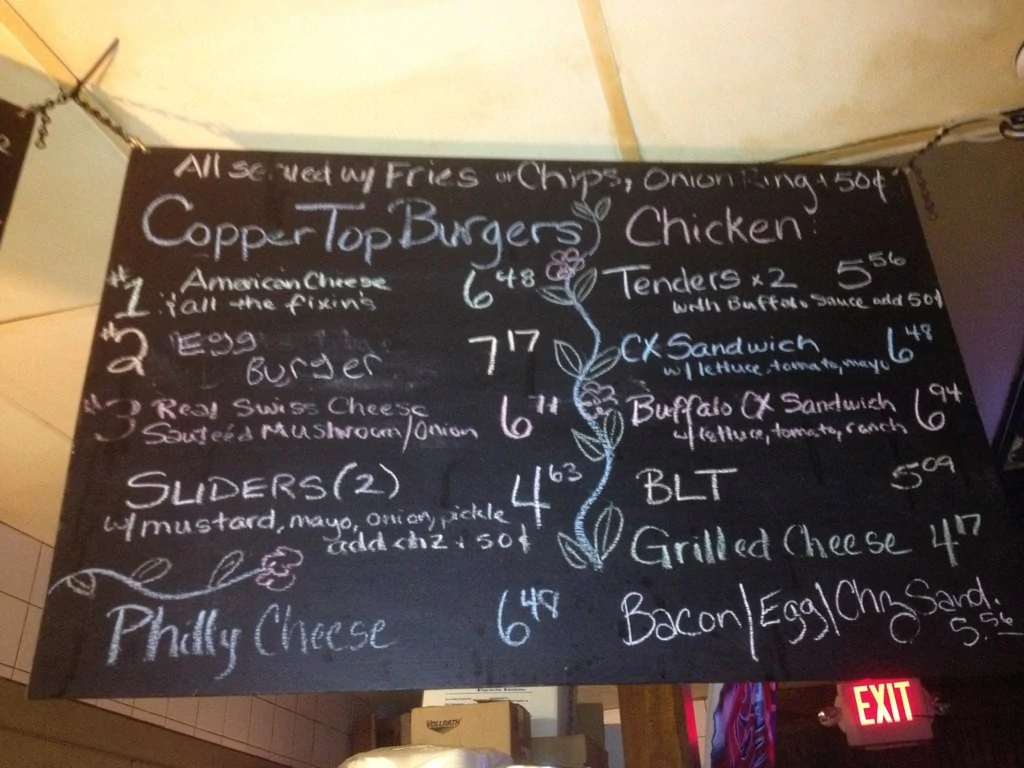 All served w/ Fries or Chips, Onion Ring + 50¢
Copper Top Burgers
#1 American Cheese 6 48
& all the fixin's
#2 Egg Burger 7 17
#3 Real Swiss Cheese
Sauteéd Mushroom/Onion 6 71
SLIDERS (2) 4 63
w/ mustard, mayo, onion, pickle
add chz + 50¢
Philly Cheese 6 48
Chicken:
Tenders x2 5 56
with Buffalo Sauce add 50¢
CX Sandwich 6 48
w/ lettuce, tomato, mayo
Buffalo CX Sandwich 6 94
w/ lettuce, tomato, ranch
BLT 5 09
Grilled Cheese 4 17
Bacon/Egg/Chz Sand. 5.56
VOLLRATH
EXIT